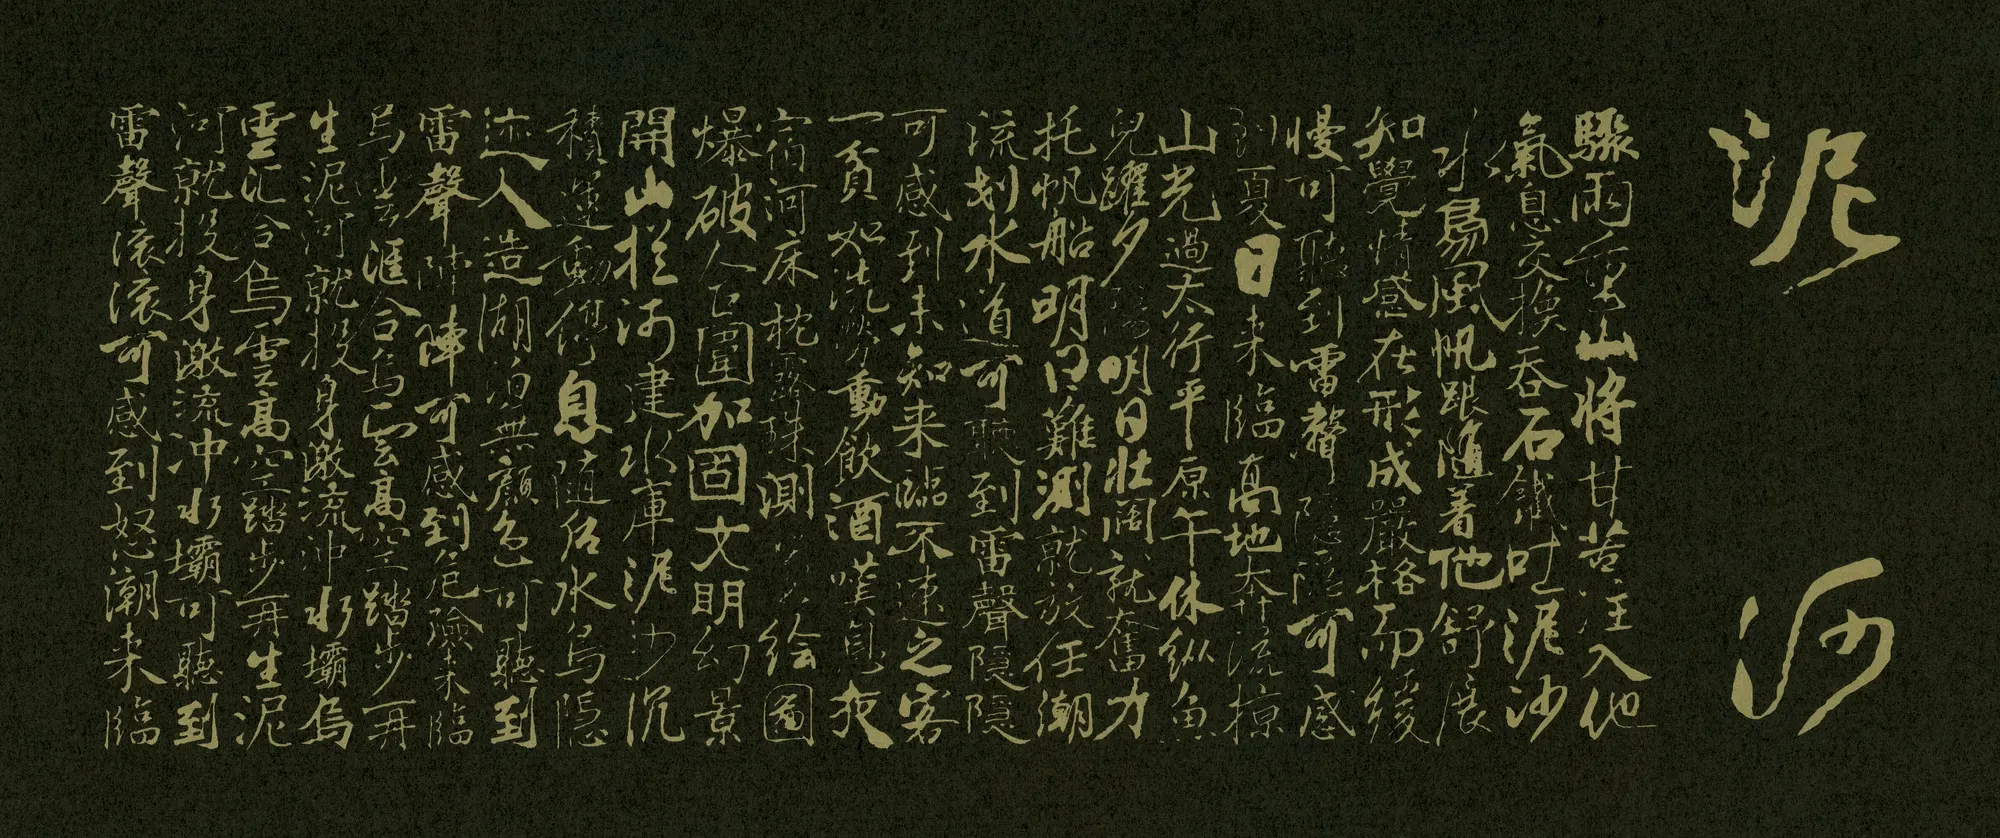 泥河
驟雨重山將甘苦注入他
氣息交換吞石鐵吐泥沙
小島風帆跟隨着他舒展
知覺情感在形成嚴格而緩
慢可聽到雷聲隱隱可感
到夏日來臨高地奔流掠
山光過太行平原午休縱魚
兒躍夕陽明日壯闊就奮力
托帆船明日難測就放任潮
流划水道可聽到雷聲隱隱
可感到未知来臨不速之客
一貧如洗勞動飲酒嘆息夜
宿河床枕露珠測繪圖
爆破人工圍加固文明幻景
開山拦河建水庫泥沙沉
積運動停息隨后水鳥隱
迹人造湖泊無顏色可聽到
雷聲陣陣可感到危險来臨
烏雲滙合烏雲高空踏步再
生泥河就投身激流沖水壩烏
雲汇合烏雲高空踏步再生泥
河就投身激流冲水壩可聽到
雷聲滚滚可感到怒潮来臨